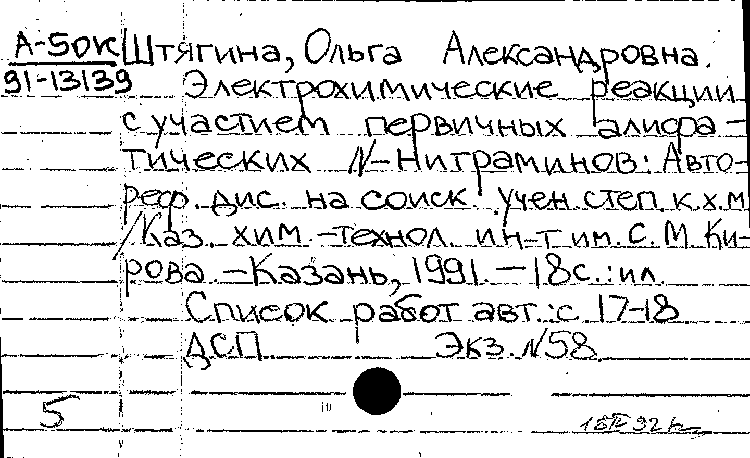 А-50к Штягина, Ольга Александровна.
91-13139 Электрохимические реакции
с участием первичных алифа-
тических N-Нитраминов: Авто-
реф. дис. на соиск. учен. степ. к.х.м
/Каз. хим.-технол. ин-т им. С. М. Ки-
рова. -Казань, 1991. -18с.: ил.
Список работ авт.: с. 17-18
ДСП Экз. N58
5
92